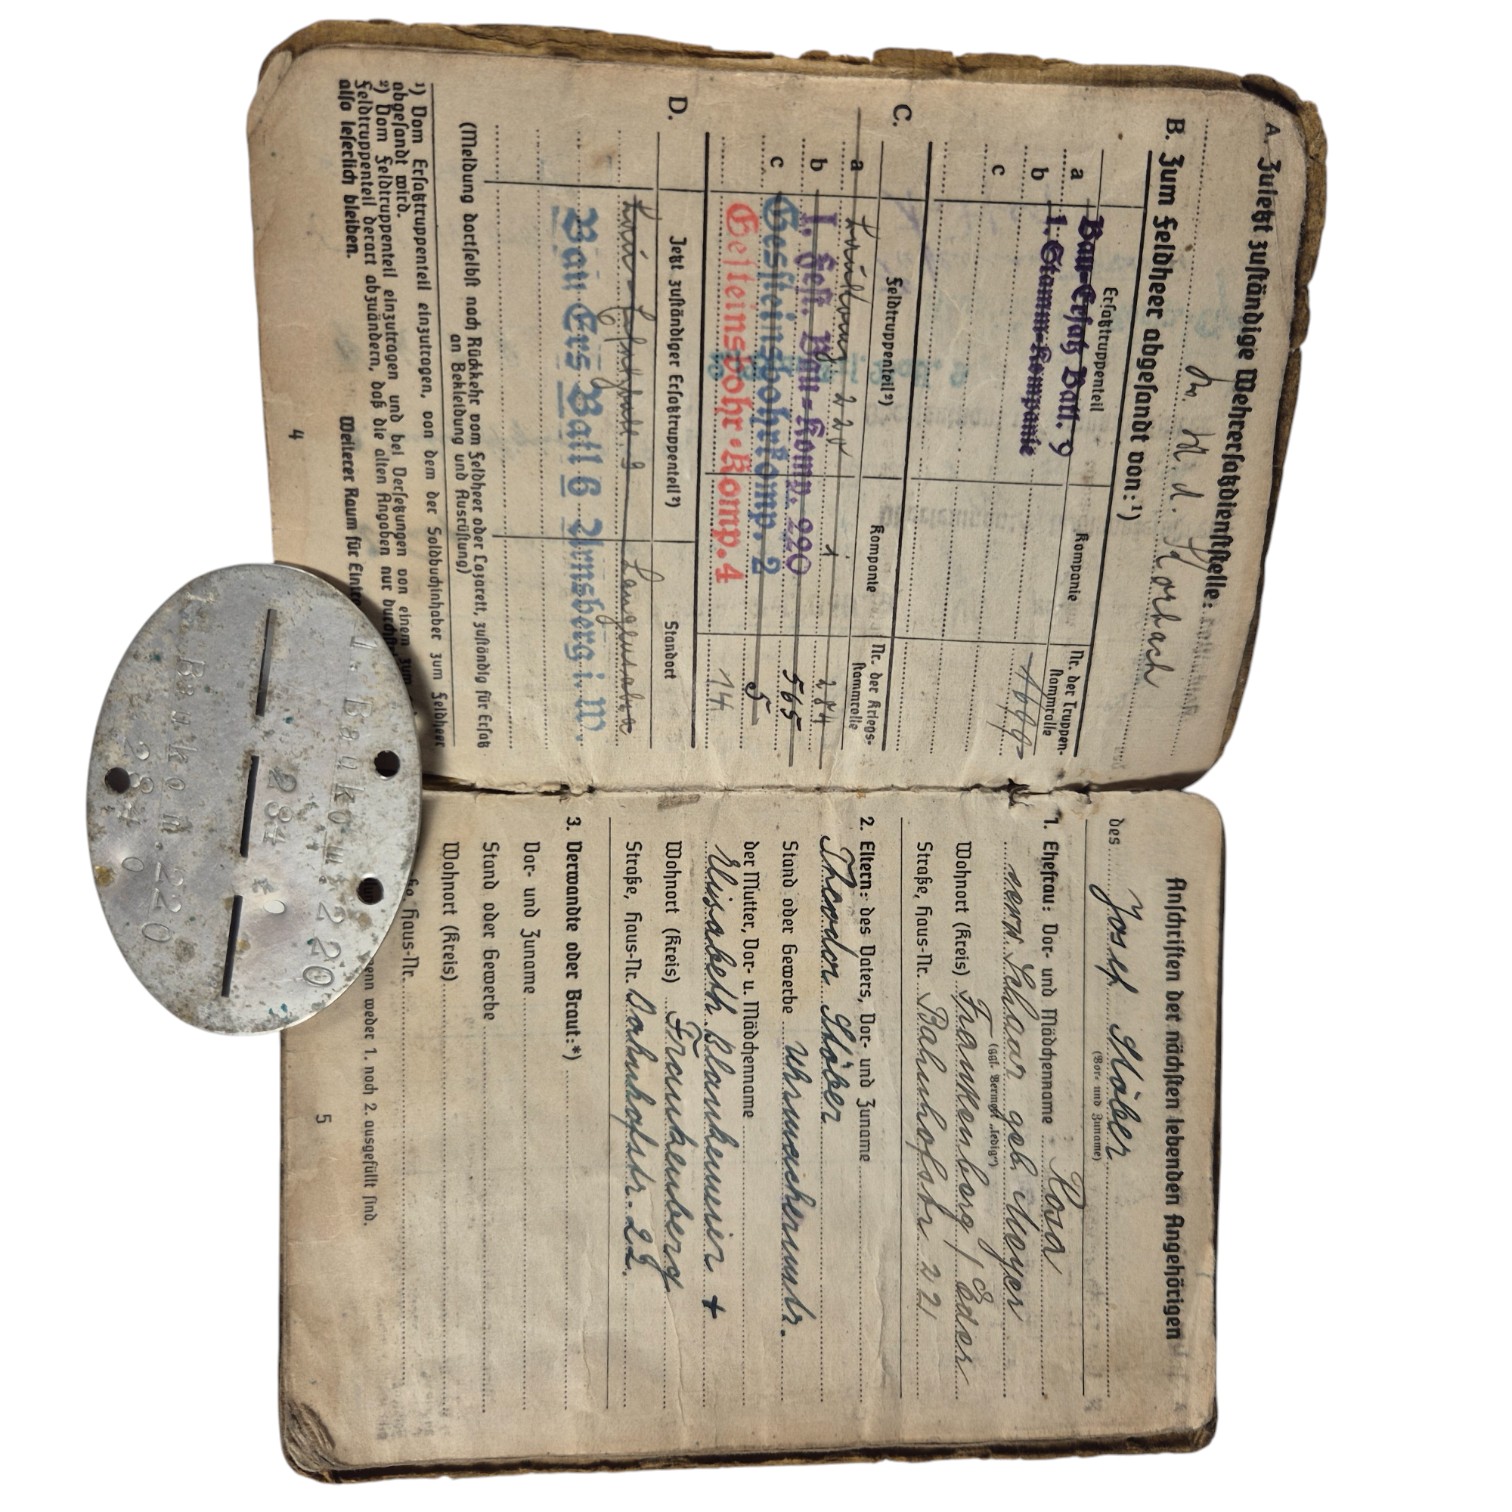 A. Zuletzt zuständige Wehrersatzdienststelle:
B. Zum Feldheer abgesandt von:¹)
Ersatztruppenteil Kompanie Nr. der Truppen-
stammrolle
a Bau-Ersatz Batl. 9
b 1. Stamm-Kompanie
c
C.
Feldtruppenteil²) Kompanie Nr. der Kriegs-
stammrolle
a 220 1 284
b 1. Fest. Bau-Komp. 220 565
c Gesteinsbohrkomp. 2 5
Gesteinsbohr-Komp. 4 14
D.
Jetzt zuständiger Ersatztruppenteil²) Standort
Bau Ers Batl 6 Arnsberg i. W.
(Meldung dortselbst nach Rückkehr vom Feldheer oder Lazarett, zuständig für Ersatz
an Bekleidung und Ausrüstung)
¹) Vom Ersatztruppenteil einzutragen, von dem der Soldbuchinhaber zum Feldheer
abgesandt wird.
²) Vom Feldtruppenteil einzutragen und bei Versetzungen von einem zum
Feldtruppenteil derart abzuändern, daß die alten Angaben nur
also leserlich bleiben.
Weiterer Raum für
4
Anschriften der nächsten lebenden Angehörigen
des Josef Stöber
(Vor- und Zuname)
1. Ehefrau: Vor- und Mädchenname Rosa
(ggf. Vermerk „ledig")
verw. Schaar geb. Moyer
Wohnort (Kreis) Frankenberg / Eder
Straße, Haus-Nr. Bahnhofstr 22
2. Eltern: des Vaters, Vor- und Zuname
Theodor Stöber
Stand oder Gewerbe Uhrmachermstr.
der Mutter, Vor- u. Mädchenname
Elisabeth Blankemeier +
Wohnort (Kreis) Frankenberg
Straße, Haus-Nr. Bahnhofstr. 22.
3. Verwandte oder Braut:*)
Vor- und Zuname
Stand oder Gewerbe
Wohnort (Kreis)
Haus-Nr.
wenn weder 1. noch 2. ausgefüllt sind.
5
1. Bauko.m.220
284 0
1. Bauko.m.220
284 0